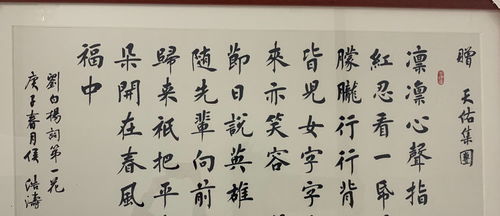 贈 天佑集團
凛凛心聲指
紅忍看一帋
朦朧行行背
皆児女字字
來亦笑容
節日說英雄
随先輩向前
歸来祇把平
朵開在春風
福中
劉白楊詞第一花
庚子春月俟 浩濤